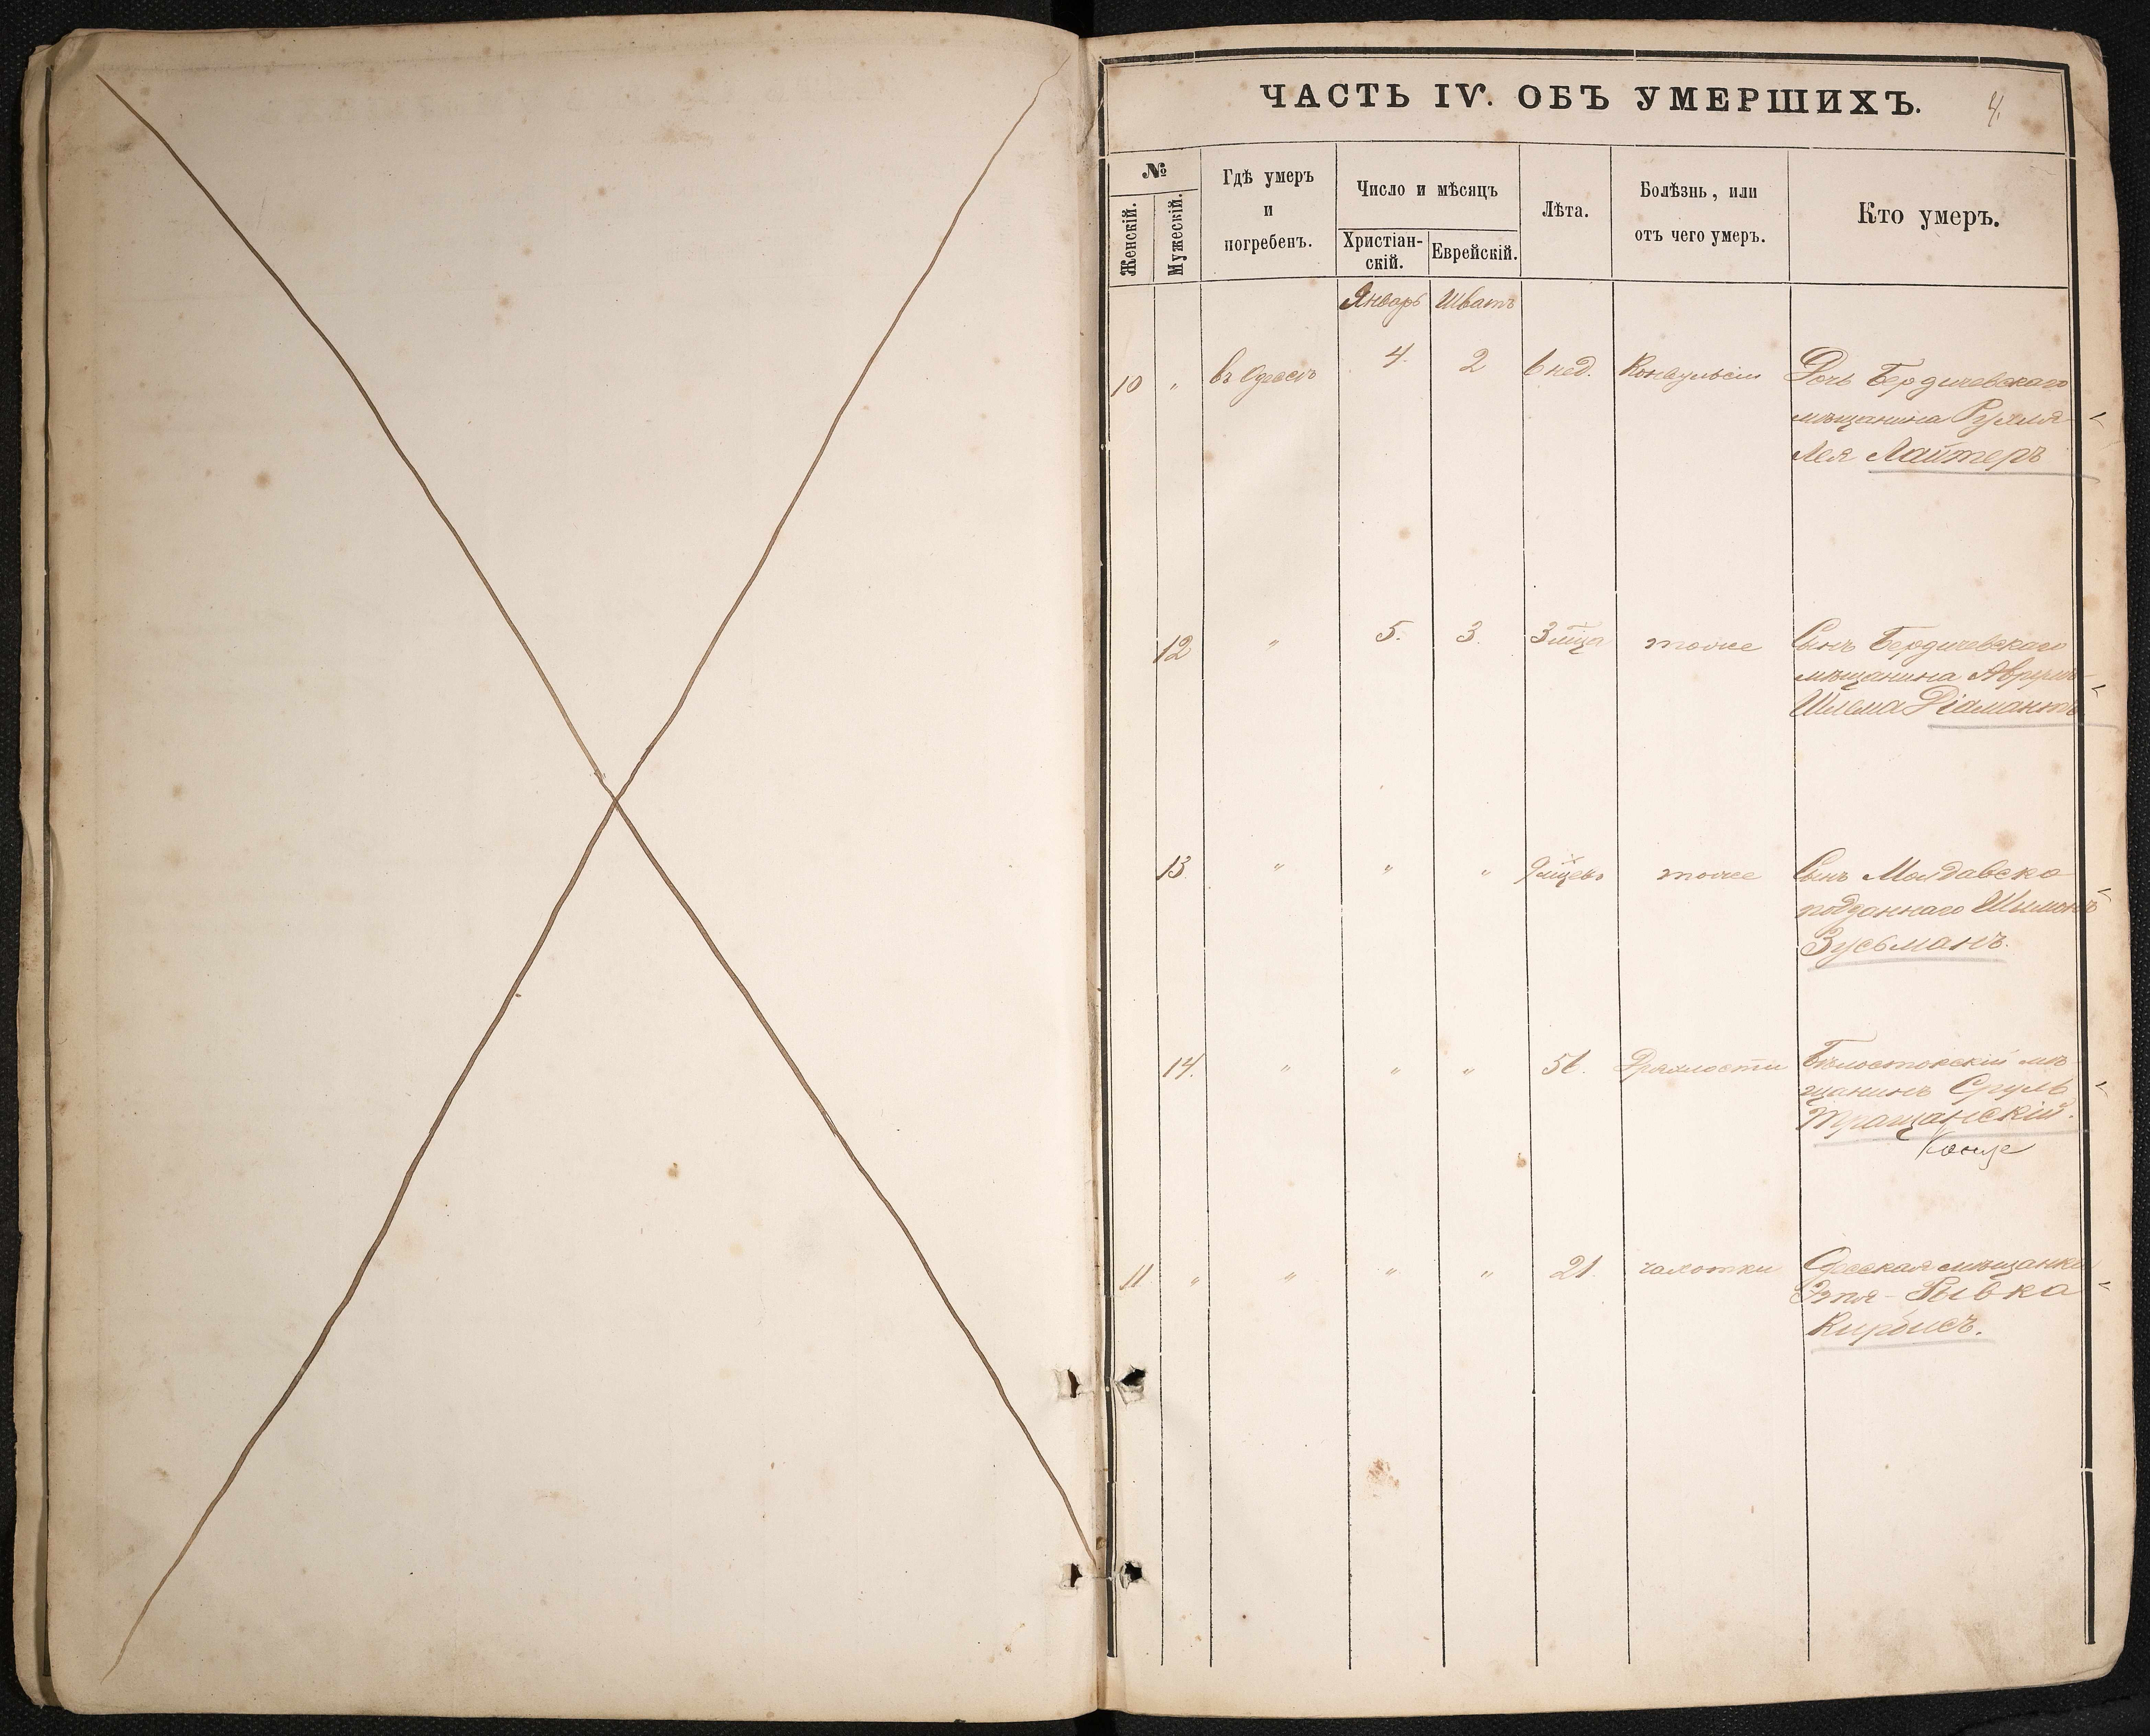 ЧАСТЬ IV. ОБЪ УМЕРШИХЪ. 4.
№
Женскій. Мужескій.
Гдѣ умеръ
и
погребенъ.
Число и мѣсяцъ
Христіан-
скій.
Еврейскій.
Лѣта.
Болѣзнь, или
отъ чего умеръ.
Кто умеръ.
Январь Шватъ
10 " въ Одессѣ 4. 2 6 нед. Конвульсіи Дочь Бердичевскаго
мѣщанина Рухля-
Лея Лайтеръ
12 " 5. 3. 3 мца тоже Сынъ Бердичевскаго
мѣщанина Аврумъ-
Шлема Діамантъ
13 " " " 9 мцевъ тоже Сынъ Молдавско
подданнаго Шимонъ
Зусьманъ.
14. " " " 56. Дряхлости Бѣлостокскій мѣ-
щанинъ Сруль
Тращанскій.
11 " " " " 21. чахотки Одесская мѣщанка
Этя-Рывка
Кирбисъ.